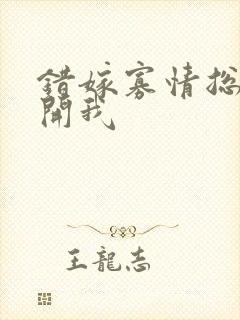 錯嫁寡情総
開我
王龍志